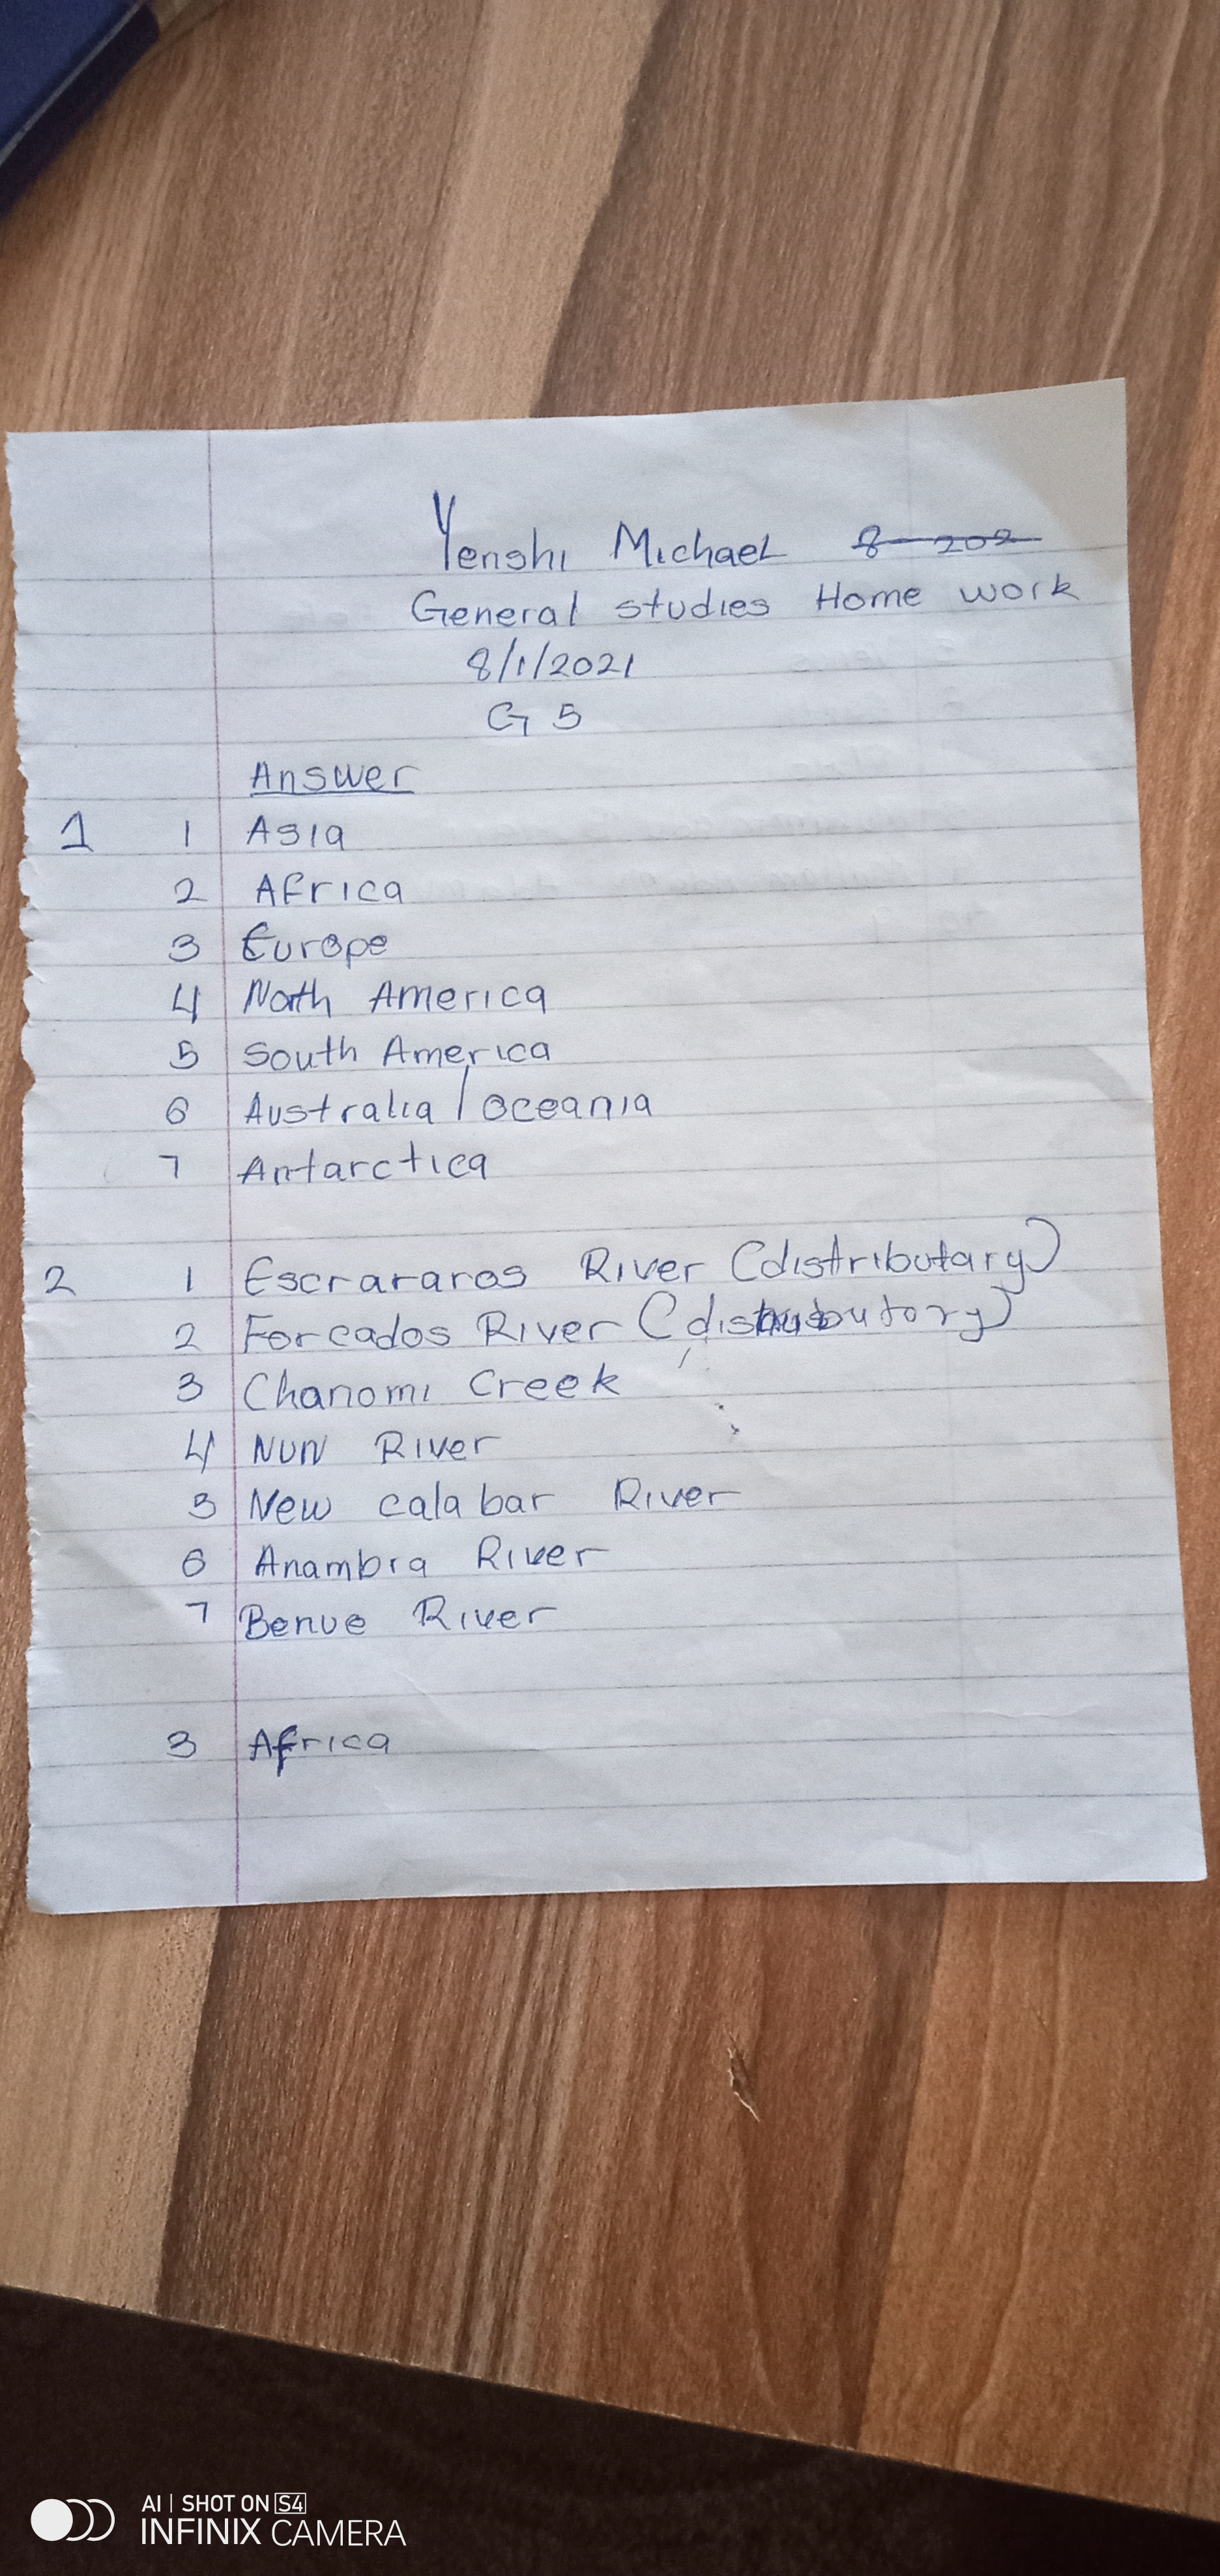 Yenshi Michael 8-202
General studies Home work
8/1/2021
G 5
Answer
1 1 Asia
2 Africa
3 Europe
4 North America
5 South America
6 Australia / oceania
7 Antarctica
2 1 Escrararos River (distributary)
2 Forcados River (distributory)
3 Chanomi Creek
4 Nun River
5 New calabar River
6 Anambra River
7 Benue River
3 Africa
AI | SHOT ON S4
INFINIX CAMERA